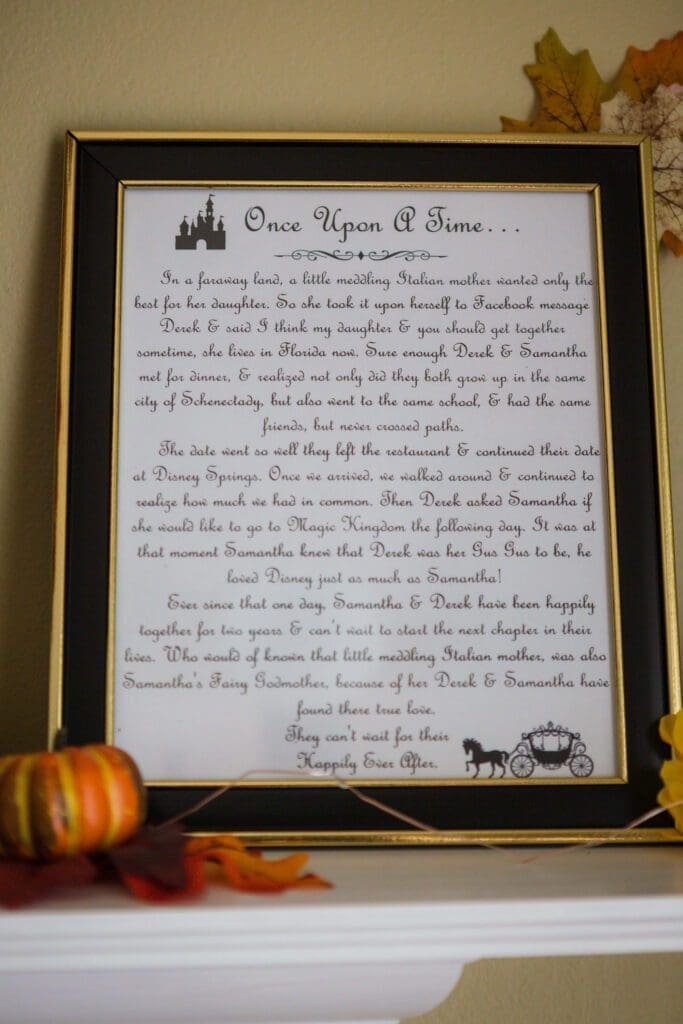 Once Upon A Time...
In a faraway land, a little meddling Italian mother wanted only the
best for her daughter. So she took it upon herself to Facebook message
Derek & said I think my daughter & you should get together
sometime, she lives in Florida now. Sure enough Derek & Samantha
met for dinner, & realized not only did they both grow up in the same
city of Schenectady, but also went to the same school, & had the same
friends, but never crossed paths.
The date went so well they left the restaurant & continued their date
at Disney Springs. Once we arrived, we walked around & continued to
realize how much we had in common. Then Derek asked Samantha if
she would like to go to Magic Kingdom the following day. It was at
that moment Samantha knew that Derek was her Gus Gus to be, he
loved Disney just as much as Samantha!
Ever since that one day, Samantha & Derek have been happily
together for two years & can't wait to start the next chapter in their
lives. Who would of known that little meddling Italian mother, was also
Samantha's Fairy Godmother, because of her Derek & Samantha have
found there true love.
They can't wait for their
Happily Ever After.